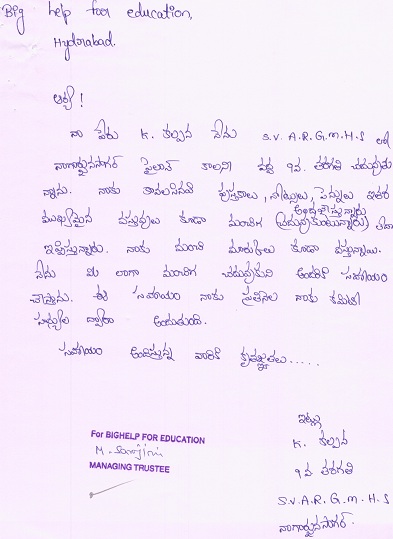 Big help for education,
Hyderabad.
ఆర్య!
నా పేరు K. కల్పన నేను S.V.A.R.G.M.H.S లో
నాగార్జునసాగర్ పైలాన్ కాలని వద్ద 9వ తరగతి చదువుతు
న్నాను. నాకు కావలసినవి పుస్తకాలు, నోట్సులు, పెన్నులు ఇతర
అందజేస్తున్నారు
ముఖ్యమైన వస్తువులు కూడా మంచిగ (చదువుకుంటున్నారు) లేదా
ఇప్పిస్తున్నారు. నాకు మంచి మార్కులు కూడా వస్తున్నాయి.
నేను మీ లాగా మంచిగ చదువుకుని అందరికి సహాయం
చేస్తాను. ఈ సహాయం నాకు ప్రతినెల నాకు కమిటి
సభ్యుల ద్వారా అందుతుంది.
సహాయం అందిస్తున్న వారికి కృతజ్ఞతలు.....
ఇట్లు
K. కల్పన
9వ తరగతి
S.V.A.R.G.M.H.S
నాగార్జునసాగర్.
For BIGHELP FOR EDUCATION
MANAGING TRUSTEE